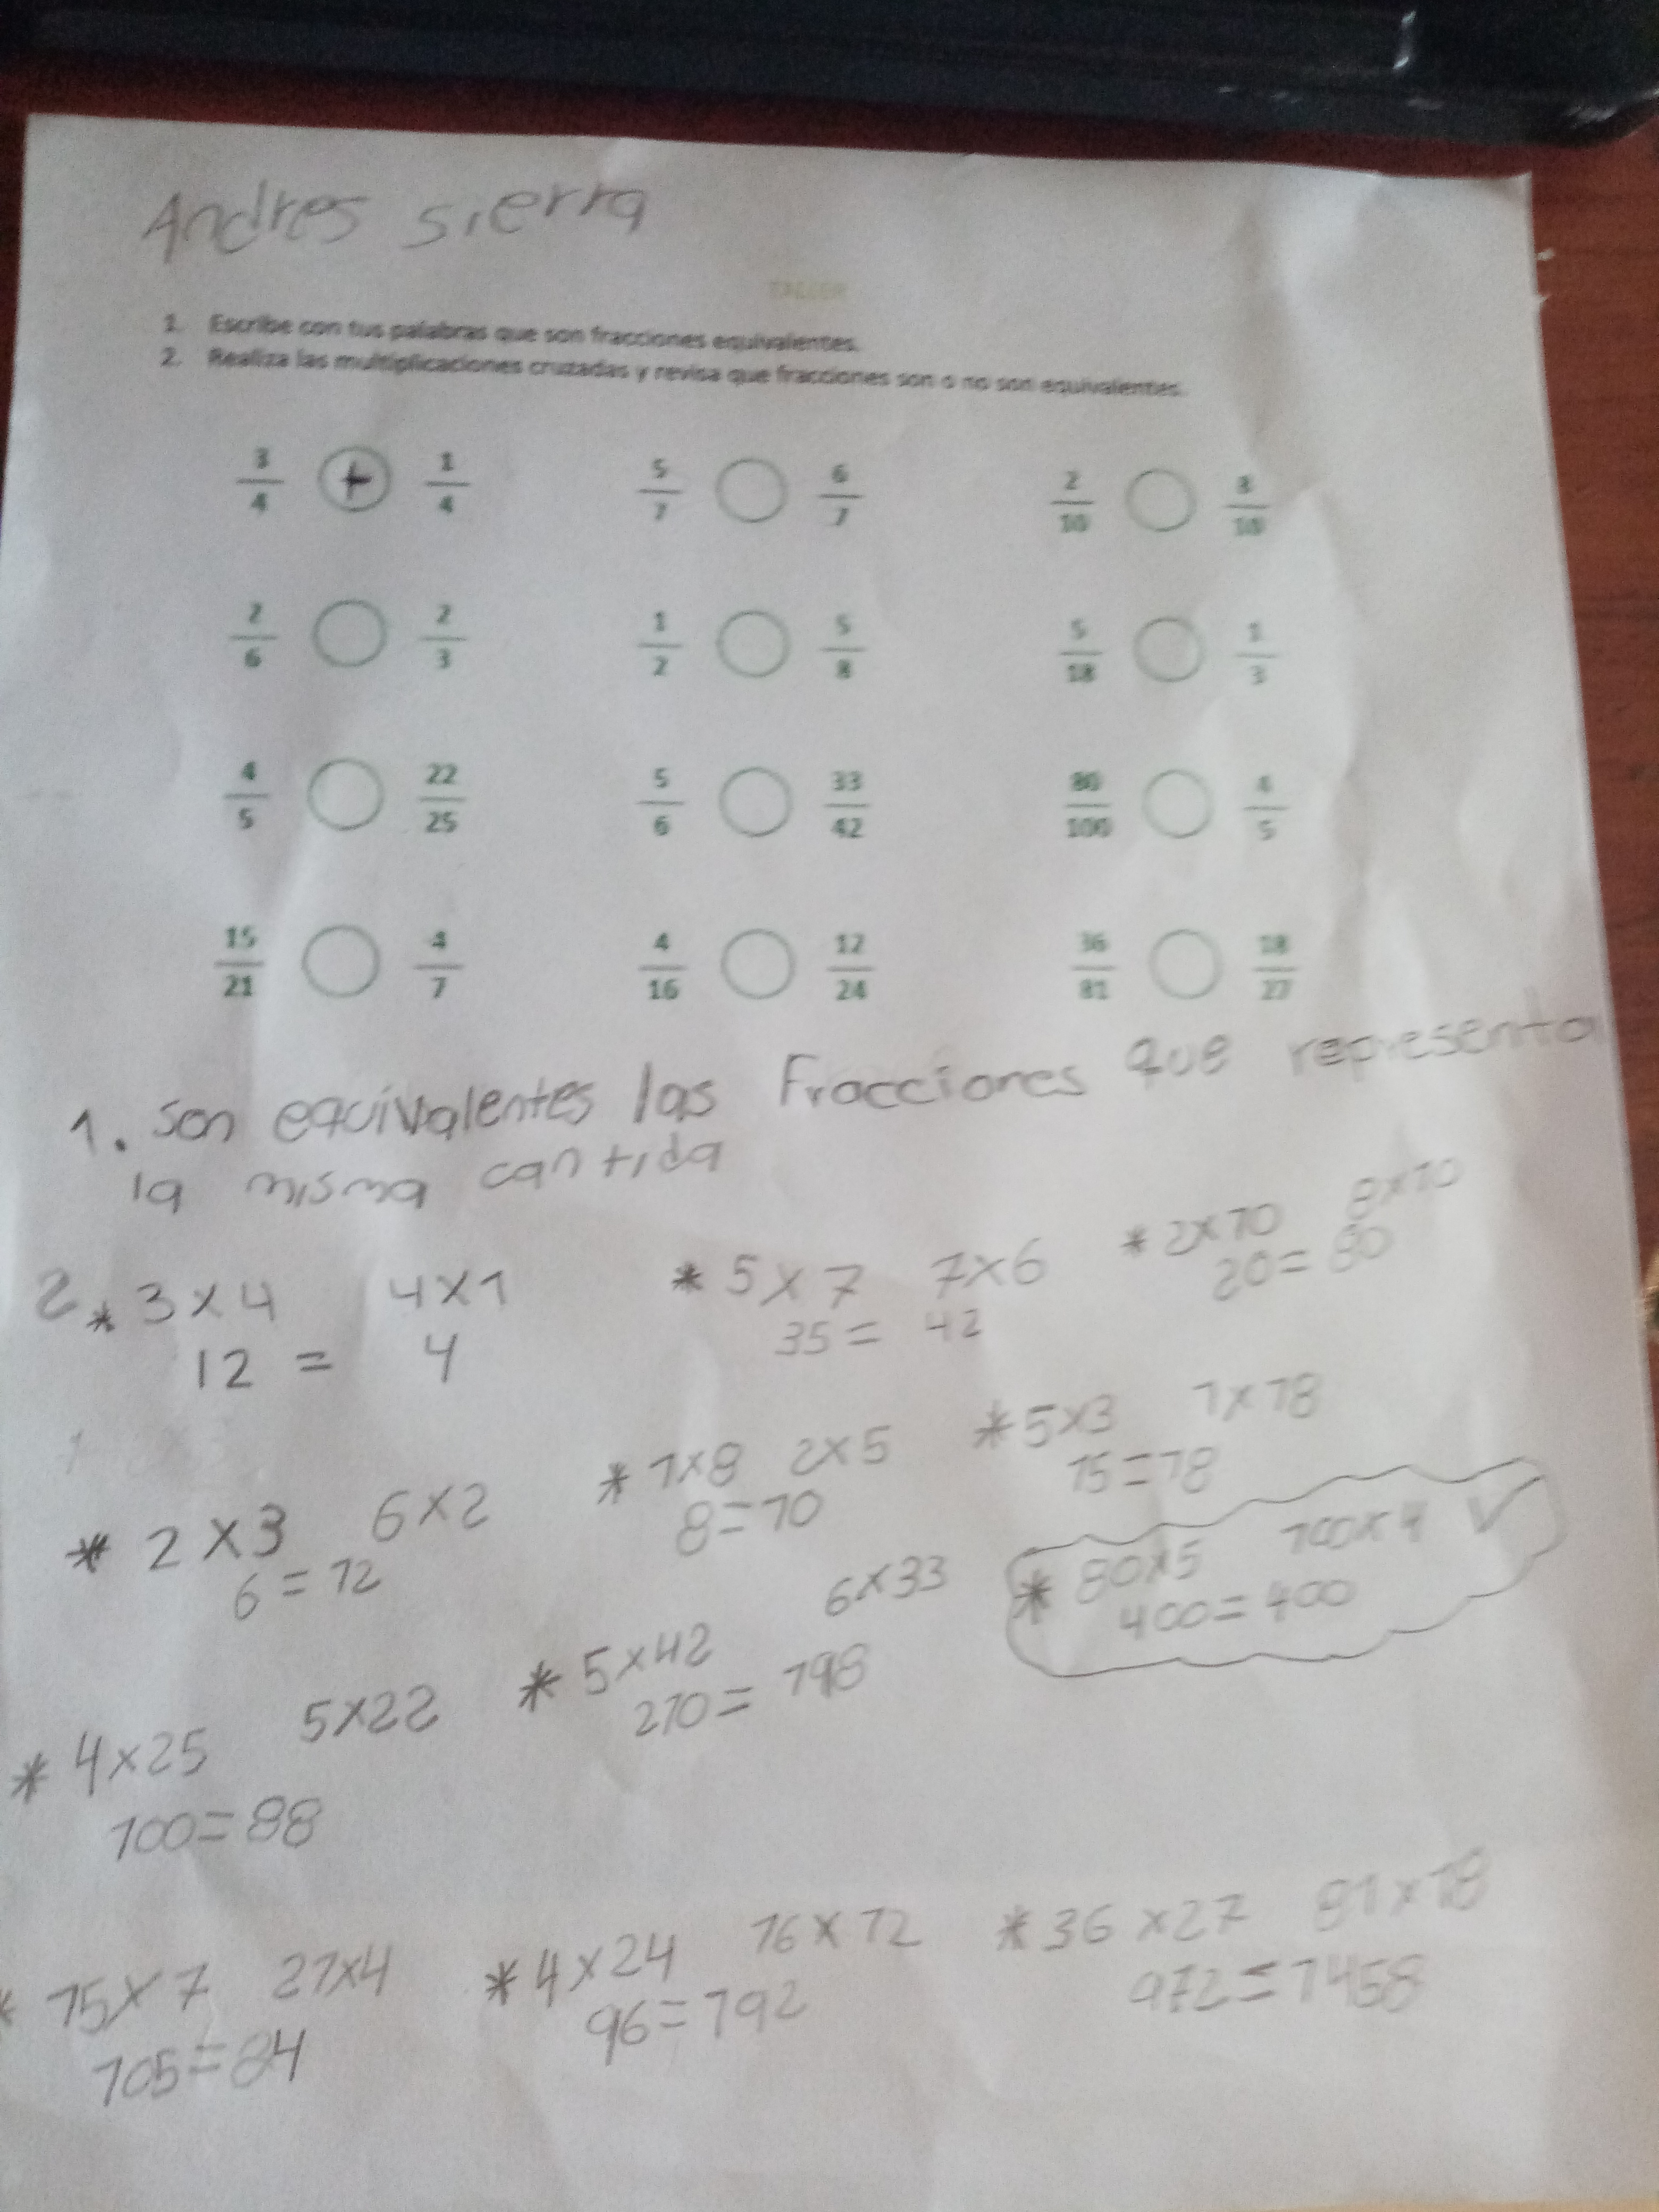 Andres sierra
TALLER
1. Escribe con tus palabras que son fracciones equivalentes.
2. Realiza las multiplicaciones cruzadas y revisa que fracciones son o no son equivalentes.
3/4 + 1/4 5/7 6/7 2/10 8/10
2/6 2/3 1/2 5/8 5/18 1/3
4/5 22/25 5/6 33/42 80/100 4/5
15/21 4/7 4/16 12/24 36/81 18/27
1. son equivalentes las Fracciones que representa
la misma cantida
2. * 3x4 4x1 * 5x7 7x6 * 2x10 8x10
12 = 4 35 = 42 20 = 80
* 2x3 6x2 * 1x8 2x5 * 5x3 1x18
6 = 12 8 = 10 15 = 18
* 4x25 5x22 * 5x42 6x33 * 80x5 100x4 ✓
100 = 88 210 = 198 400 = 400
* 15x7 21x4 * 4x24 16x12 * 36x27 81x18
105 = 84 96 = 192 972 = 1458